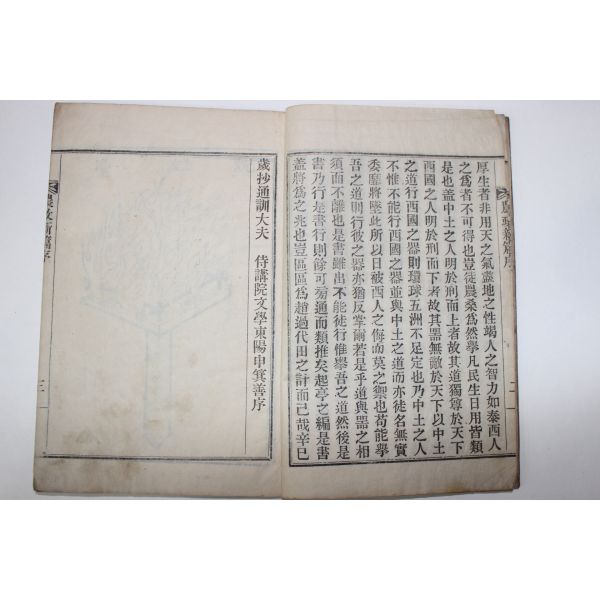 農政新編序
二
厚生者非用天之氣盡地之性竭人之智力如泰西人
之爲者不可得也豈徒農桑爲然擧凡民生日用皆類
是也盖中土之人明於刑而上者故其道獨尊於天下
西國之人明於刑而下者故其器無敵於天下以中土
之道行西國之器則環球五洲不足定也乃中土之人
不惟不能行西國之器並與中土之道而亦徒名無實
委靡將墜此所以日被西人之侮而莫之禦也苟能擧
吾之道則行彼之器亦猶反掌爾若是乎道與器之相
須而不離也是書雖出不能徒行惟擧吾之道然後是
書乃行是書行則餘可旁通而類推矣起亭之編是書
盖將爲之兆也豈區區爲趙過代田之計而已哉辛巳
歲抄通訓大夫 侍講院文學東陽申箕善序
農政新編序
三